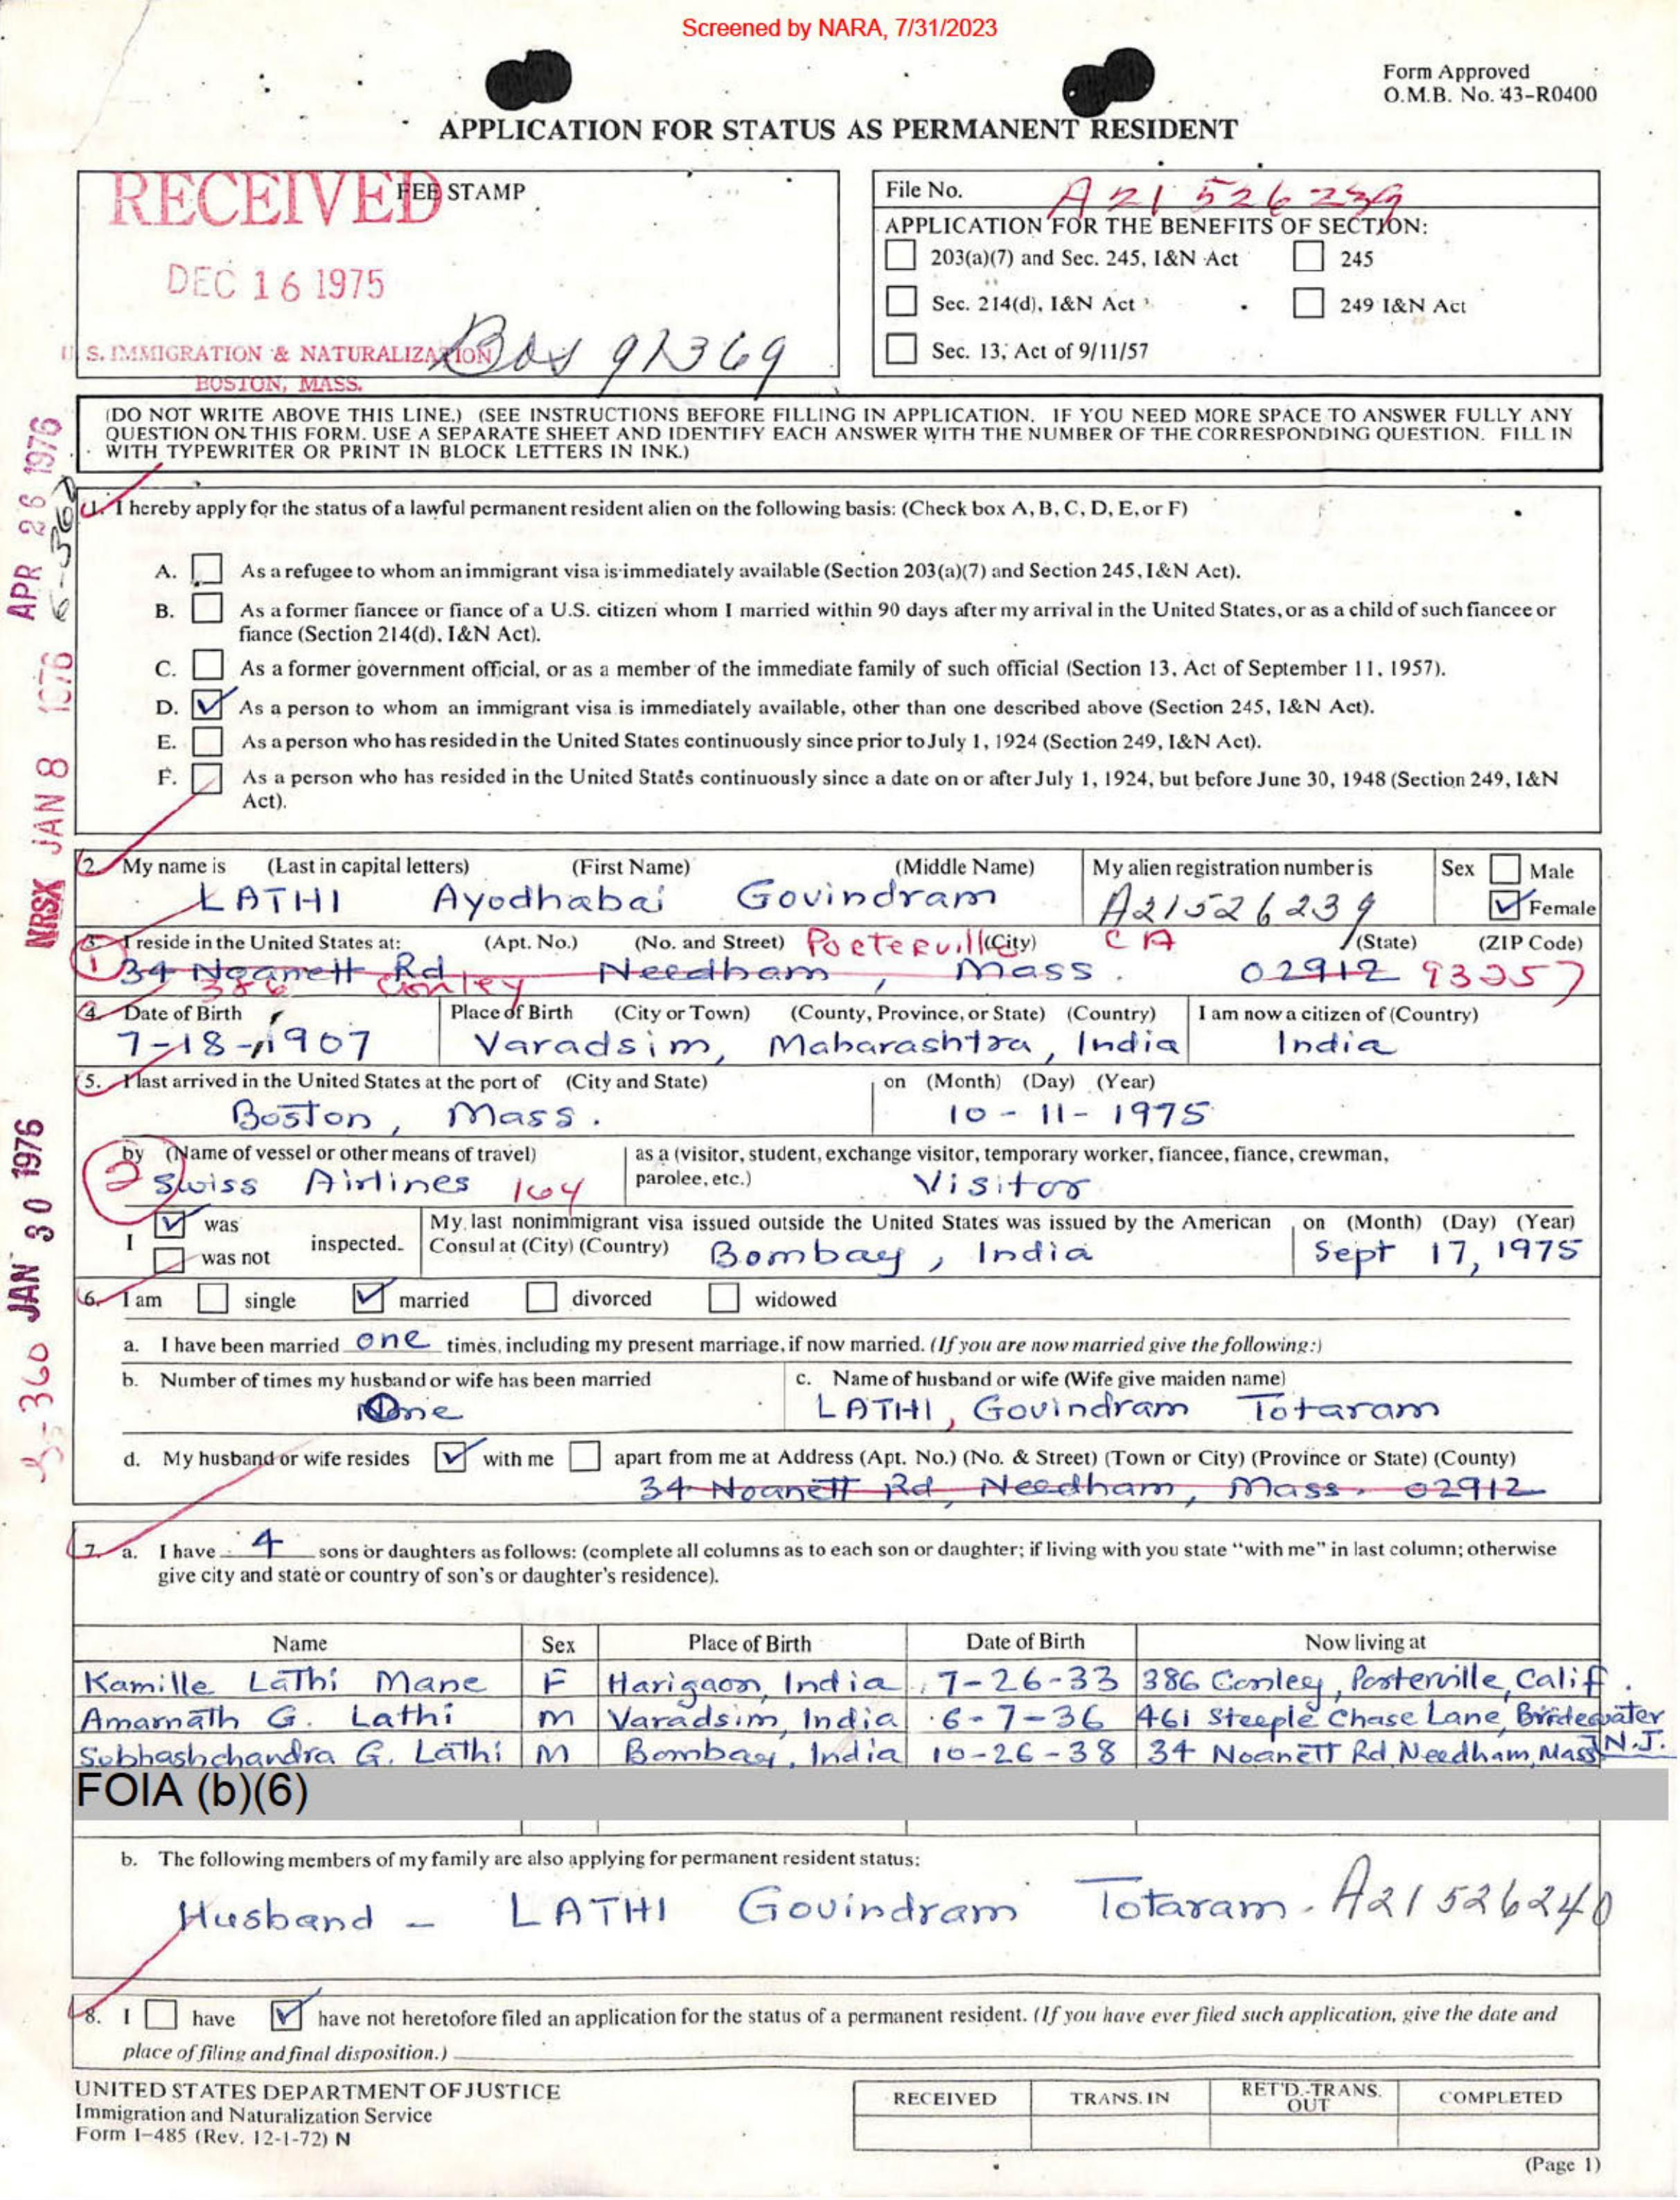 Screened by NARA, 7/31/2023
Form Approved
O.M.B. No. 43-R0400
APPLICATION FOR STATUS AS PERMANENT RESIDENT
RECEIVED
FEE STAMP
DEC 16 1975
U. S. IMMIGRATION & NATURALIZATION
BOSTON, MASS.
Bos 91369
File No. A21 526 239
APPLICATION FOR THE BENEFITS OF SECTION:
203(a)(7) and Sec. 245, I&N Act 245
Sec. 214(d), I&N Act 249 I&N Act
Sec. 13, Act of 9/11/57
(DO NOT WRITE ABOVE THIS LINE.) (SEE INSTRUCTIONS BEFORE FILLING IN APPLICATION. IF YOU NEED MORE SPACE TO ANSWER FULLY ANY
QUESTION ON THIS FORM, USE A SEPARATE SHEET AND IDENTIFY EACH ANSWER WITH THE NUMBER OF THE CORRESPONDING QUESTION. FILL IN
WITH TYPEWRITER OR PRINT IN BLOCK LETTERS IN INK.)
APR 26 1976
NRSX JAN 8 1976
JAN 30 1976
1. I hereby apply for the status of a lawful permanent resident alien on the following basis: (Check box A, B, C, D, E, or F)
A. As a refugee to whom an immigrant visa is immediately available (Section 203(a)(7) and Section 245, I&N Act).
B. As a former fiancee or fiance of a U.S. citizen whom I married within 90 days after my arrival in the United States, or as a child of such fiancee or
fiance (Section 214(d), I&N Act).
C. As a former government official, or as a member of the immediate family of such official (Section 13, Act of September 11, 1957).
D. As a person to whom an immigrant visa is immediately available, other than one described above (Section 245, I&N Act).
E. As a person who has resided in the United States continuously since prior to July 1, 1924 (Section 249, I&N Act).
F. As a person who has resided in the United States continuously since a date on or after July 1, 1924, but before June 30, 1948 (Section 249, I&N
Act).
2. My name is (Last in capital letters) (First Name) (Middle Name) My alien registration number is Sex Male
LATHI Ayodhabai Govindram A21526239 Female
3. I reside in the United States at: (Apt. No.) (No. and Street) Porterville (City) CA (State) (ZIP Code)
1 34 Noanett Rd Needham, Mass. 02912 93257
386 Conley
4. Date of Birth Place of Birth (City or Town) (County, Province, or State) (Country) I am now a citizen of (Country)
7-18-1907 Varadsim, Maharashtra, India India
5. I last arrived in the United States at the port of (City and State) on (Month) (Day) (Year)
Boston, Mass. 10-11-1975
by (Name of vessel or other means of travel) as a (visitor, student, exchange visitor, temporary worker, fiancee, fiance, crewman,
parolee, etc.)
2 Swiss Airlines 164 Visitor
I was
was not inspected.
My last nonimmigrant visa issued outside the United States was issued by the American on (Month) (Day) (Year)
Consul at (City) (Country) Bombay, India Sept 17, 1975
6. I am single married divorced widowed
a. I have been married one times, including my present marriage, if now married. (If you are now married give the following:)
b. Number of times my husband or wife has been married c. Name of husband or wife (Wife give maiden name)
One LATHI, Govindram Totaram
d. My husband or wife resides with me apart from me at Address (Apt. No.) (No. & Street) (Town or City) (Province or State) (County)
34 Noanett Rd, Needham, Mass. 02912
7. a. I have 4 sons or daughters as follows: (complete all columns as to each son or daughter; if living with you state "with me" in last column; otherwise
give city and state or country of son's or daughter's residence).
Name Sex Place of Birth Date of Birth Now living at
Kamille Lathi Mane F Harigaon, India 7-26-33 386 Conley, Porterville, Calif.
Amarnath G. Lathi M Varadsim, India 6-7-36 461 Steeple Chase Lane, Bridgewater
N.J.
Subhashchandra G. Lathi M Bombay, India 10-26-38 34 Noanett Rd Needham, Mass
FOIA (b)(6)
b. The following members of my family are also applying for permanent resident status:
Husband - LATHI Govindram Totaram. A21526240
8. I have have not heretofore filed an application for the status of a permanent resident. (If you have ever filed such application, give the date and
place of filing and final disposition.)
UNITED STATES DEPARTMENT OF JUSTICE
Immigration and Naturalization Service
Form I-485 (Rev. 12-1-72) N
RECEIVED TRANS. IN RET'D.-TRANS. OUT COMPLETED
(Page 1)